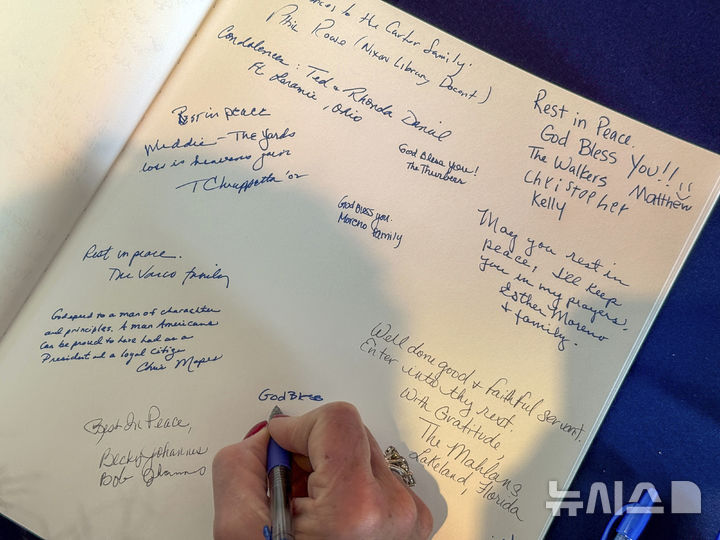 to the Carter family.
Phil Rowe (Nixon Library Docent)
Condolences: Ted & Rhonda Daniel
Ft. Loramie, Ohio
Rest in peace
Muddie - The Yards
loss is heavens gain
T Chiappetta '02
God Bless you!
God Bless you.
Moreno family
Rest in Peace.
God Bless You!!
The Walkers
Christopher Matthew
Kelly
May you rest in
peace, I'll keep
you in my prayers.
Esther Moreno
& family.
Rest in peace.
The Vasco family
Godspeed to a man of character
and principles. A man Americans
can be proud to have had as a
President and a loyal citizen
Chris Mapes
Well done good & faithful servant.
Enter into thy rest.
With Gratitude,
The Mahlans
Lakeland, Florida
God Bless
Rest In Peace,
Becky Johannes
Bob Johannes
뉴시스